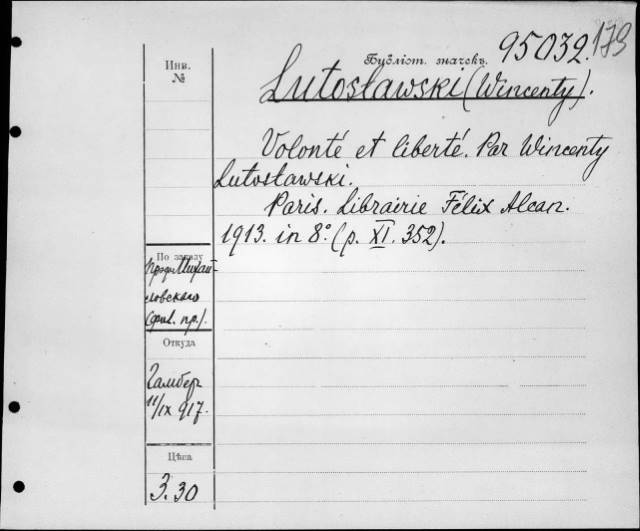 95032. 179
Бубліот. значекъ.
Инв.
№
Lutosławski (Wincenty).
Volonté et liberté. Par Wincenty
Lutosławski.
Paris. Librairie Félix Alcan.
1913. in 8.° (p. XI. 352).
По заказу
проф. Михай-
ловскаго
(фил. пр.).
Откуда
Гамбер
11/IX 917.
Цѣса
3.30